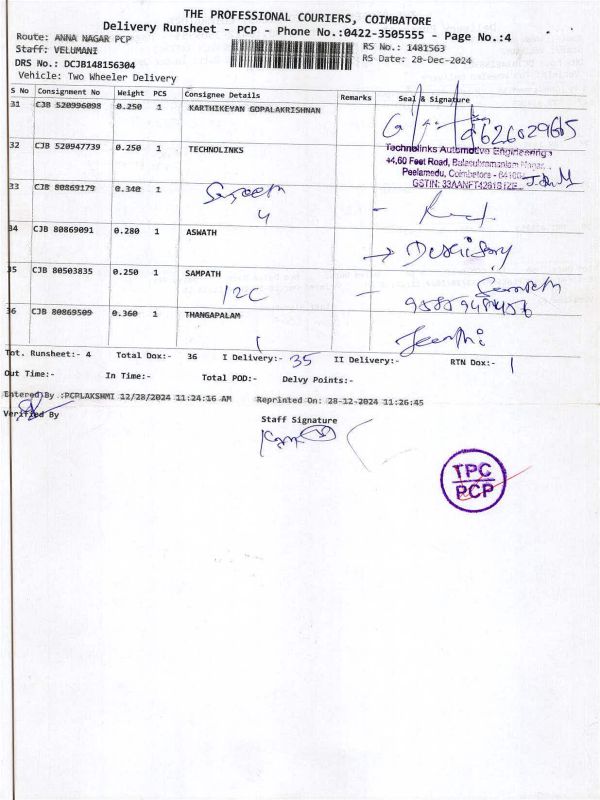 THE PROFESSIONAL COURIERS, COIMBATORE
Delivery Runsheet - PCP - Phone No.:0422-3505555 - Page No.:4
Route: ANNA NAGAR PCP
RS No.: 1481563
Staff: VELUMANI
RS Date: 28-Dec-2024
DRS No.: DCJB148156304
Vehicle: Two Wheeler Delivery
S No Consignment No Weight PCS Consignee Details Remarks Seal & Signature
31 CJB 520996098 0.250 1 KARTHIKEYAN GOPALAKRISHNAN
9626029605
32 CJB 520947739 0.250 1 TECHNOLINKS
Technolinks Automotive Engineering
44,60 Feet Road, Balasubramaniam Nagar,
Peelamedu, Coimbatore -
GSTIN:
33 CJB 80869179 0.340 1
34 CJB 80869091 0.280 1 ASWATH
35 CJB 80503835 0.250 1 SAMPATH
12C
36 CJB 80869509 0.360 1 THANGAPALAM
Tot. Runsheet:- 4 Total Dox:- 36 I Delivery:- 35 II Delivery:- RTN Dox:- 1
Out Time:- In Time:- Total POD:- Delvy Points:-
Entered By :PCPLAKSHMI 12/28/2024 11:24:16 AM Reprinted On: 28-12-2024 11:26:45
Verified By
Staff Signature
TPC
PCP